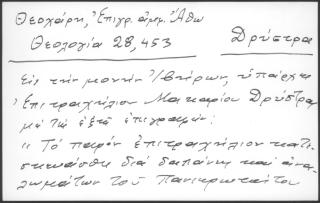 Θεοχάρη, Ἐπιγρ. ἄμφ. Ἄθω
Θεολογία 28, 453
Δρύστρα
Εἰς τὴν μονὴν Ἰβήρων, ὑπάρχει
Ἐπιτραχήλιον Μακαρίου Δρύστρας
μὲ τὴν ἑξῆς ἐπιγραφήν:
"Τὸ παρὸν ἐπιτραχήλιον κατε-
σκευάσθη διὰ δαπάνης καὶ ἀνα-
λωμάτων τοῦ Πανιερωτάτου